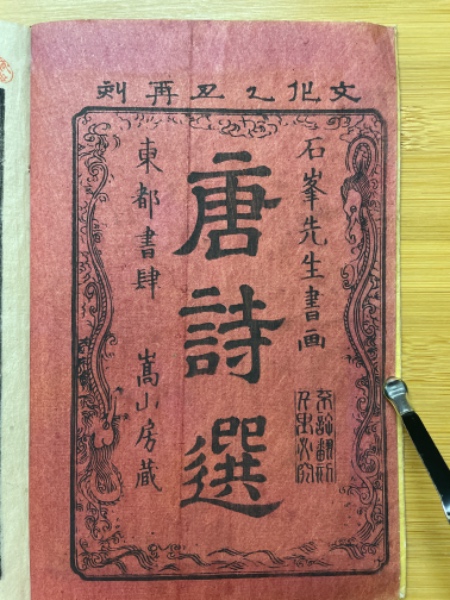 文化乙丑再刻
石峯先生書画
唐詩選
東都書肆 嵩山房蔵